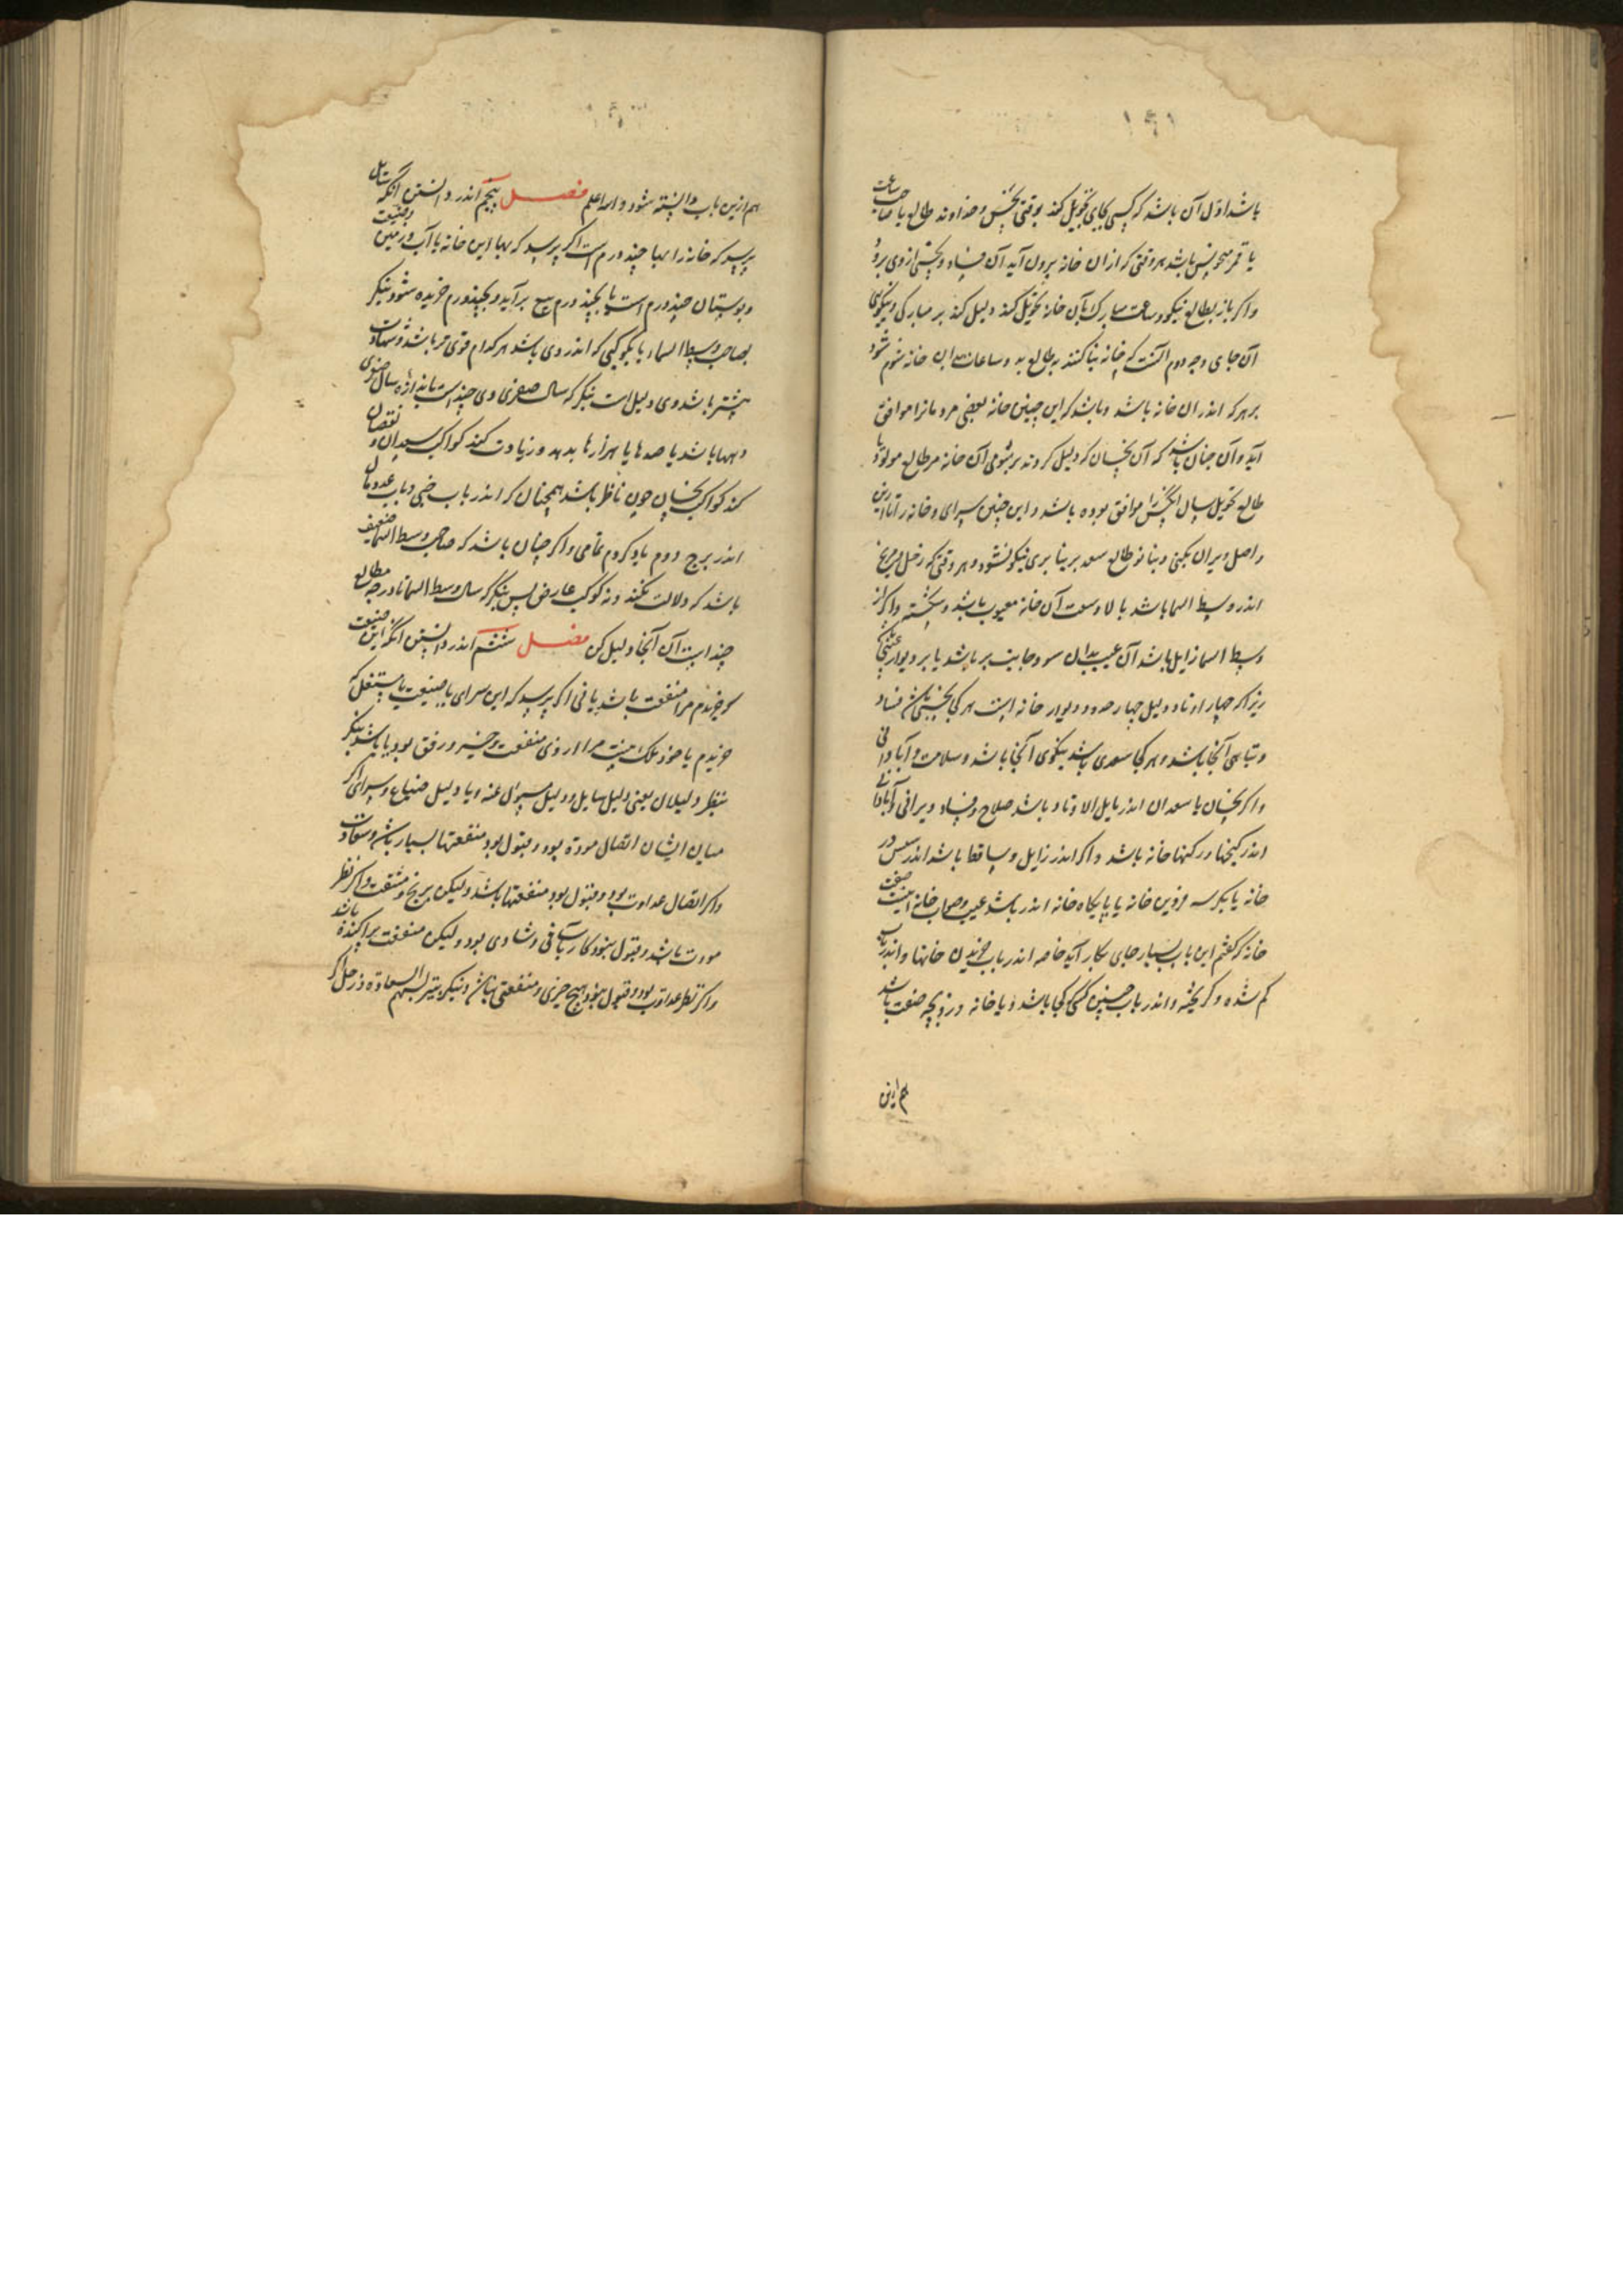 باشد اول آن باشد که کسی بجای تحویل کند بوقتی نحس و خداوند طالع یا صاحب ساعت
یا قمر منحوس باشد هر وقتی که از آن خانه بیرون آید آن فساد و نحسی از وی برود
و اگر باز بطالع نیکو و ساعت مبارک بآن خانه تحویل کند دلیل کند بر مبارکی و نیکوی
آن جای وجه دوم آنست که خانه بنا کنند بطالع بد و ساعات این خانه شوم شود
بر هر که اندر ان خانه باشد و باشد که این چنین خانه بعضی مردمانرا موافق
آید و آن چنان باشد که آن نحسان که دلیل کردند بر شومی آن خانه مر طالع مولود یا
طالع تحویل سال آنکس را موافق بوده باشد و این چنین سرای و خانه را تا از بن
و اصل ویران نکنی و بنا نو طالع سعد بر بنا بری نیکو نشود و هر وقتی که زحل و مریخ
اندر وسط السما باشد بالا و سقف آن خانه معیوب باشد و شکسته و اگر از
وسط السما زایل باشد آن عیب بدان سو و جانب بر باشد یا بر دیوار
زیرا که چهار اوتاد دلیل چهار حدود دیوار خانه است هر کجا نحسی باشد فساد
و تباهی آنجا باشد و هر کجا سعدی باشد نیکوی آنجا باشد و سلامت و آبادانی
و اگر نحسان یا سعدان اندر مایل الاوتاد باشد صلاح و فساد ویرانی و آبادانی
اندر کنجها و رکنها خانه باشد و اگر اندر زایل و ساقط باشد اندر
خانه یا بکرسه فروین خانه یا پایکاه خانه اندر باشد عیب و صواب خانه اینست صفت
خانه که گفتم این باب بسیار جای بکار آید خاصه اندر باب خریدن خانها و اندر باب
گم شده و گریخته و اندر باب جستن کسی کجا باشد و یا خانه دزد بچه صفت باشد
هم ازین
هم ازین باب دانسته شود والله اعلم فصل پنجم اندر دانستن آنکه سایل
پرسد که خانه را بها چند درم است اگر پرسد که بها این خانه یا آب و زمین و ضیعت
و بوستان چند درم است یا بچند درم بیع برآید و بچند درم خریده شود بنگر
بصاحب وسط السماء یا بکوکبی که اندر وی باشد هر کدام قوی تر باشد و شهادت
بیشتر باشد وی دلیل است بنگر که سال صغری وی چند است باندازه سال صغری
دهها باشد یا صدها یا هزارها بدهد و زیادت کند کواکب سعدان و نقصان
کند کواکب نحسان چون ناظر باشد همچنان که اندر باب خبی و باب عدد مال
اندر برج دوم یاد کردم بتمامی و اگر چنان باشد که صاحب وسط السما ضعیف
باشد که دلالت نکند و نه کوکب عارض پس بنگر که سال وسط السما تا درجه مطالع
چند است آن آنجا دلیل کن فصل ششم اندر دانستن آنکه این ضیعت
که خریدم مرا منفعت باشد یا نی اگر پرسد که این سرای یا ضیعت یا مستغل که
خریدم یا خود ملک منست مرا از وی منفعت و خیر و رفق بود یا باشد بنگر
بنظر دلیلان یعنی دلیل سایل و دلیل مسئول عنه و یا دلیل ضیاع و سرای اگر
میان ایشان اتصال موده بود و قبول بود منفعتها بسیار باشد و سعادت
و اگر اتصال عداوت بود و قبول بود منفعتها باشد ولیکن برنج و مشقت و اگر نظر
مودت باشد و قبول نبود کار باسانی و شادی بود ولیکن منفعت پراکنده باشد
و اگر نظر عداوت بود و قبول نبود هیچ چیزی و منفعتی نباشد و نیکوتر سهم السعاده و زحل اگر